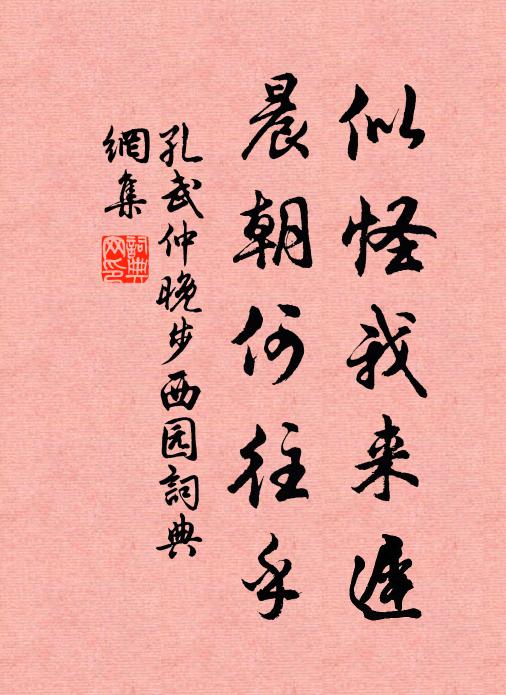 似怪我来遲
晨朝何往乎
孔武仲晚步西园詞典
網集
詞典网印